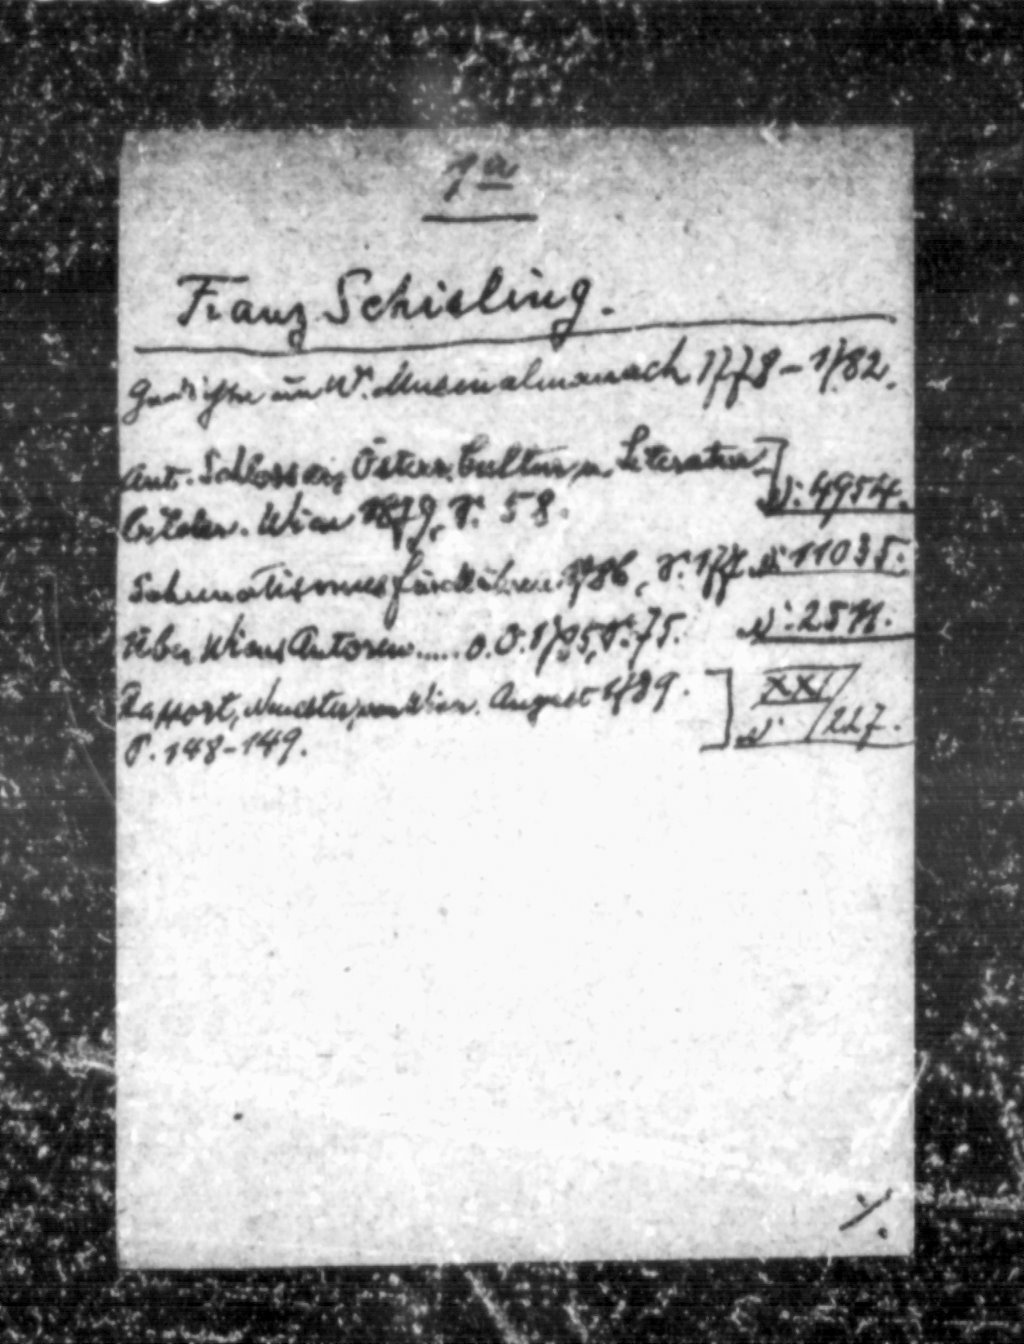 1a
Franz Schisling.
Gedichte im W. Musenalmanach 1778–1782.
Ant. Schlossar, Österr. Cultur u. Literatur
bilder. Wien 1879, S. 58. N: 4954.
Schematismus für Mähren 1786, S. 177. N: 11035.
Über Wiens Autoren..... o.O. 1785, S. 75. N: 2511.
Rapport, neuester, von Wien. August 1789. XXI
S. 148–149. N: 1227.